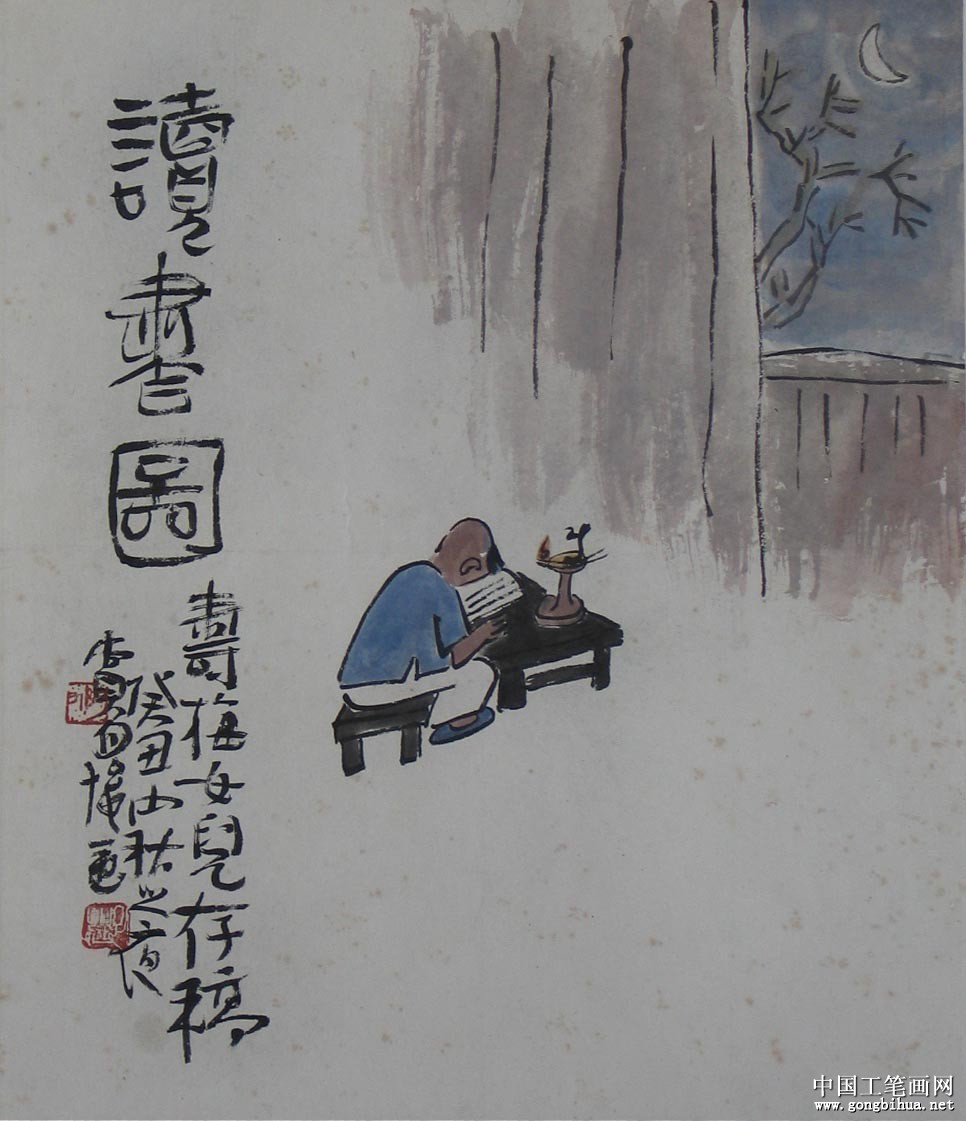 讀書圖
壽梅女兒存稿
癸丑中秋之夜
中国工笔画网
www.gongbihua.net